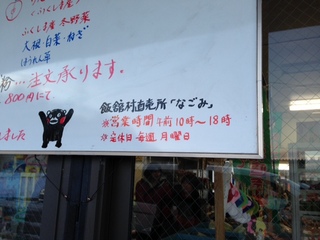 ふくしま産 冬野菜
大根・白菜・ねぎ
ほうれん草
注文承ります。
800円にて
ました
飯舘村直売所「なごみ」
※営業時間 午前10時～18時
※定休日 毎週 月曜日